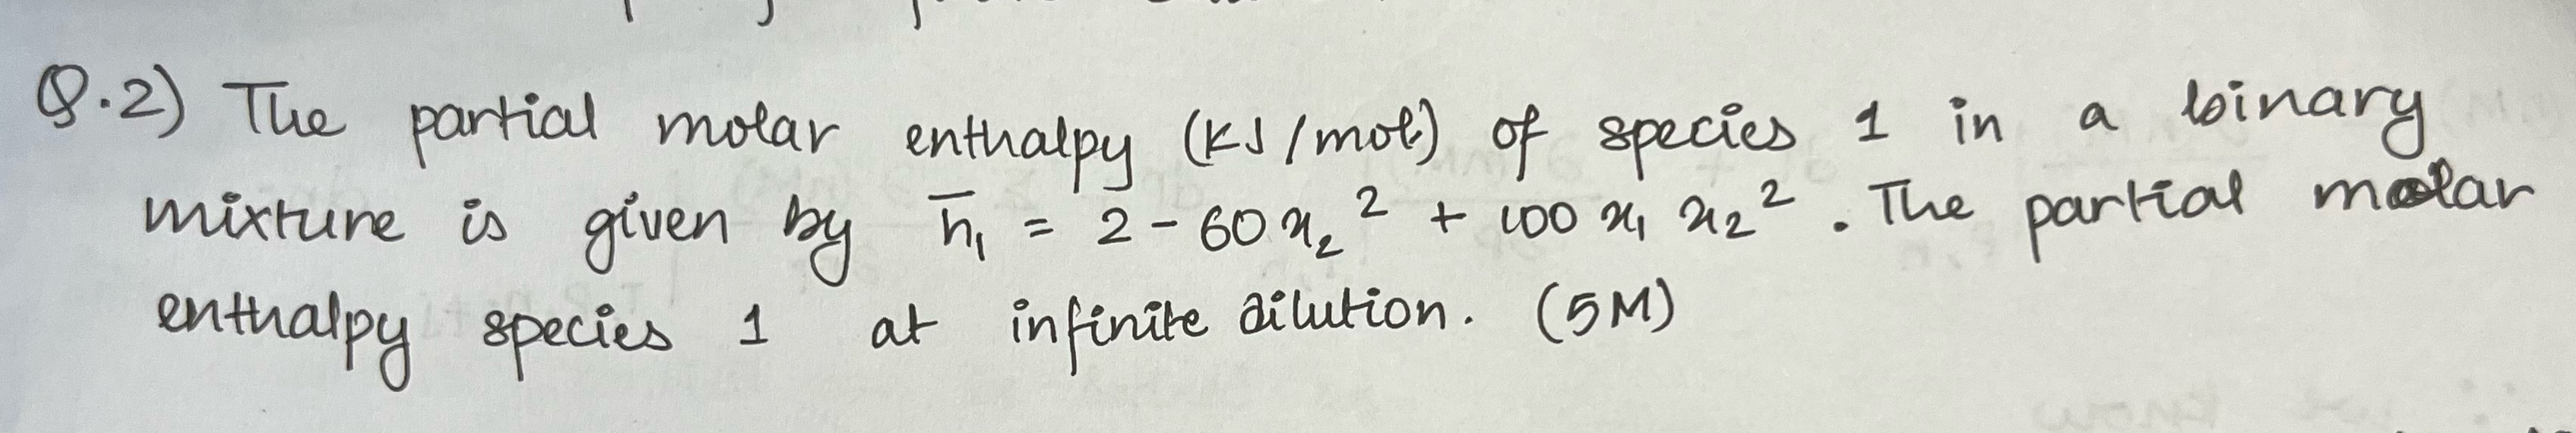 Q.2) The partial molar enthalpy (KJ/mol) of species 1 in a binary
mixture is given by h̅₁ = 2 - 60 x₂² + 100 x₁ x₂². The partial molar
enthalpy species 1 at infinite dilution. (5M)